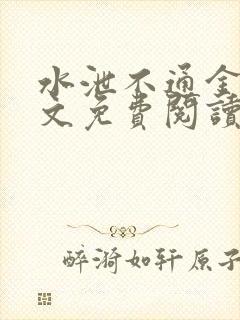 水泄不通全
文免費閱讀
醉漪如轩原子